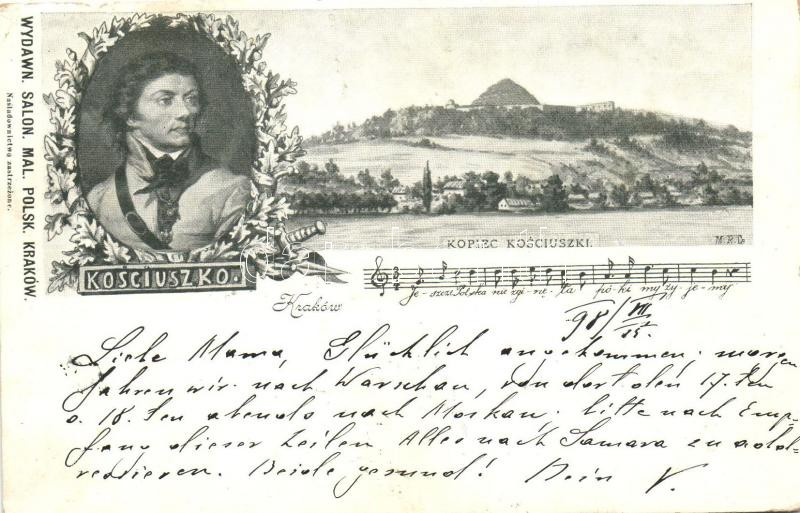 WYDAWN. SALON. MAL. POLSK. KRAKÓW.
Naśladownictwo zastrzeżone.
KOŚCIUSZKO.
KOPIEC KOŚCIUSZKI.
M.R.D.
Kraków
Je-szcze Polska nie zgi-nę-ła pó-ki my ży-je-my
98/VII 15.
Liebe Mama, Glücklich angekommen; morgen
fahren wir nach Warschau, von dort den 17. ten
o. 18. ten abends nach Moskau. bitte nach Emp-
fang dieser Zeilen Alles nach Samara zu add-
ressieren. Beide gesund! Dein V.